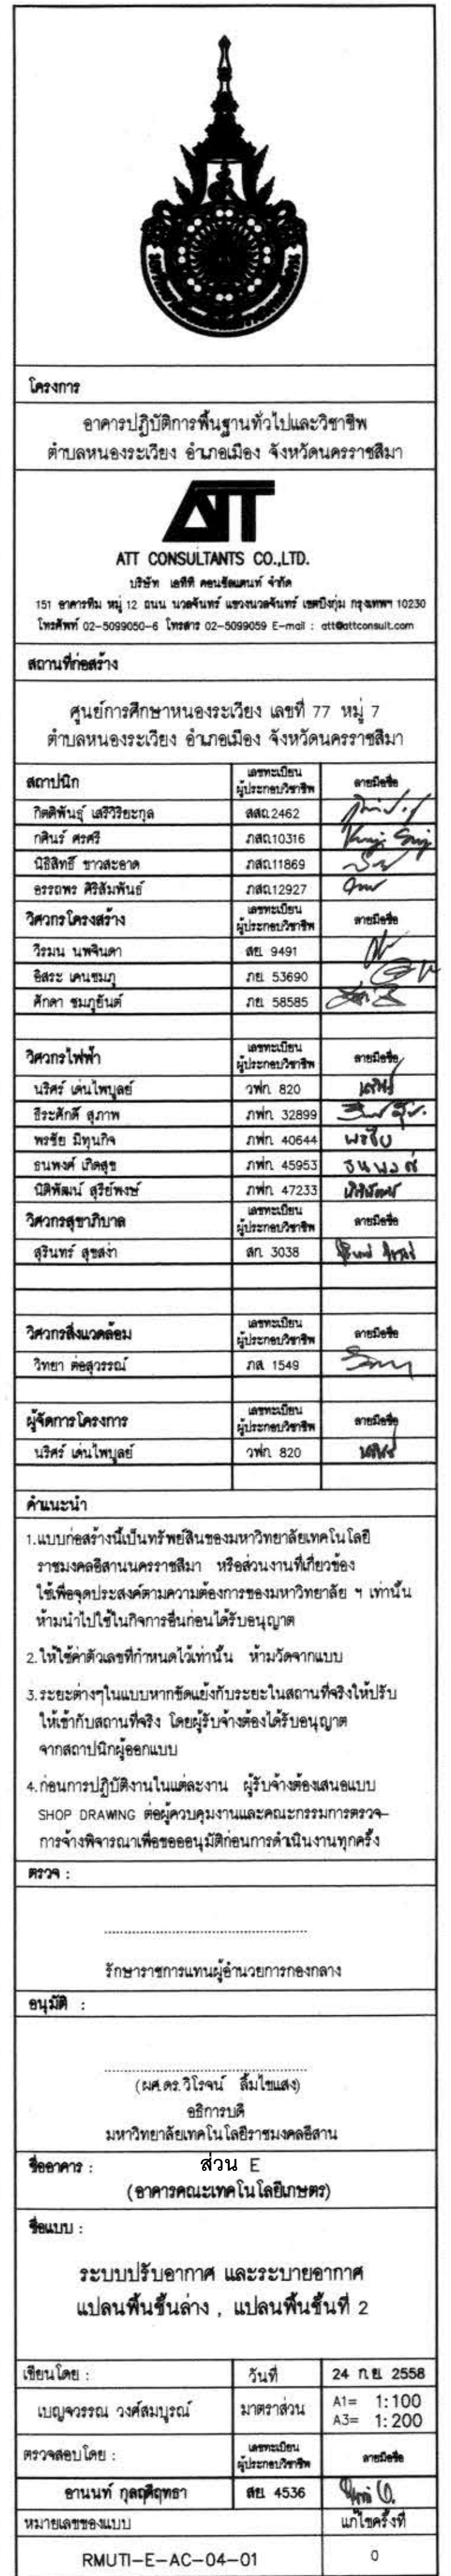 โครงการ
อาคารปฏิบัติการพื้นฐานทั่วไปและวิชาชีพ
ตำบลหนองระเวียง อำเภอเมือง จังหวัดนครราชสีมา
ATT
ATT CONSULTANTS CO.,LTD.
บริษัท เอทีที คอนซัลแตนท์ จำกัด
151 อาคารทีม หมู่ 12 ถนน นวลจันทร์ แขวงนวลจันทร์ เขตบึงกุ่ม กรุงเทพฯ 10230
โทรศัพท์ 02-5099050-6 โทรสาร 02-5099059 E-mail : att@attconsult.com
สถานที่ก่อสร้าง
ศูนย์การศึกษาหนองระเวียง เลขที่ 77 หมู่ 7
ตำบลหนองระเวียง อำเภอเมือง จังหวัดนครราชสีมา
สถาปนิก เลขทะเบียน ผู้ประกอบวิชาชีพ ลายมือชื่อ
กิตติพันธุ์ เสรีวิริยะกุล สสถ.2462
กศินร์ ศรศรี ภสถ.10316
นิธิสิทธิ์ ขาวสะอาด ภสถ.11869
อรรถพร ศิริสัมพันธ์ ภสถ.12927
วิศวกรโครงสร้าง เลขทะเบียน ผู้ประกอบวิชาชีพ ลายมือชื่อ
วีรมน นพจินดา สย. 9491
อิสระ เคนชมภู ภย. 53690
ศักดา ชมภูยันต์ ภย. 58585
วิศวกรไฟฟ้า เลขทะเบียน ผู้ประกอบวิชาชีพ ลายมือชื่อ
นริศร์ เด่นไพบูลย์ วฟก. 820
ธีระศักดิ์ สุภาพ ภฟก. 32899
พรชัย มิทุนกิจ ภฟก. 40644 พรชัย
ธนพงศ์ เกิดสุข ภฟก. 45953 ธนพงศ์
นิติพัฒน์ สุรีย์พงษ์ ภฟก. 47233 นิติพัฒน์
วิศวกรสุขาภิบาล เลขทะเบียน ผู้ประกอบวิชาชีพ ลายมือชื่อ
สุรินทร์ สุขสง่า สก. 3038
วิศวกรสิ่งแวดล้อม เลขทะเบียน ผู้ประกอบวิชาชีพ ลายมือชื่อ
วิทยา ต่อสุวรรณ์ ภส. 1549
ผู้จัดการโครงการ เลขทะเบียน ผู้ประกอบวิชาชีพ ลายมือชื่อ
นริศร์ เด่นไพบูลย์ วฟก. 820
คำแนะนำ
1.แบบก่อสร้างนี้เป็นทรัพย์สินของมหาวิทยาลัยเทคโนโลยี
ราชมงคลอีสานนครราชสีมา หรือส่วนงานที่เกี่ยวข้อง
ใช้เพื่อจุดประสงค์ตามความต้องการของมหาวิทยาลัย ฯ เท่านั้น
ห้ามนำไปใช้ในกิจการอื่นก่อนได้รับอนุญาต
2.ให้ใช้ค่าตัวเลขที่กำหนดไว้เท่านั้น ห้ามวัดจากแบบ
3.ระยะต่างๆในแบบหากขัดแย้งกับระยะในสถานที่จริงให้ปรับ
ให้เข้ากับสถานที่จริง โดยผู้รับจ้างต้องได้รับอนุญาต
จากสถาปนิกผู้ออกแบบ
4.ก่อนการปฏิบัติงานในแต่ละงาน ผู้รับจ้างต้องเสนอแบบ
SHOP DRAWING ต่อผู้ควบคุมงานและคณะกรรมการตรวจ-
การจ้างพิจารณาเพื่อขออนุมัติก่อนการดำเนินงานทุกครั้ง
ตรวจ :
รักษาราชการแทนผู้อำนวยการกองกลาง
อนุมัติ :
(ผศ.ดร.วิโรจน์ ลิ้มไขแสง)
อธิการบดี
มหาวิทยาลัยเทคโนโลยีราชมงคลอีสาน
ชื่ออาคาร : ส่วน E
(อาคารคณะเทคโนโลยีเกษตร)
ชื่อแบบ :
ระบบปรับอากาศ และระบายอากาศ
แปลนพื้นชั้นล่าง , แปลนพื้นชั้นที่ 2
เขียนโดย : วันที่ 24 ก.ย. 2558
เบญจวรรณ วงศ์สมบูรณ์ มาตราส่วน A1= 1:100
A3= 1:200
ตรวจสอบโดย : เลขทะเบียน ผู้ประกอบวิชาชีพ ลายมือชื่อ
อานนท์ กุลฤดีฤทธา สย. 4536
หมายเลขของแบบ แก้ไขครั้งที่
RMUTI-E-AC-04-01 0